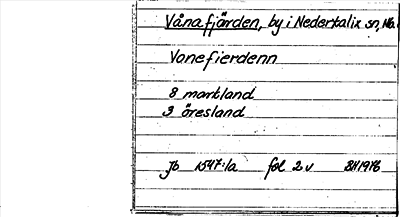 Vånafjärden, by i Nederkalix sn, Nb.
Vonefierdenn
8 markland
3 öresland
Jb 1547:1a fol 2 v BH1976